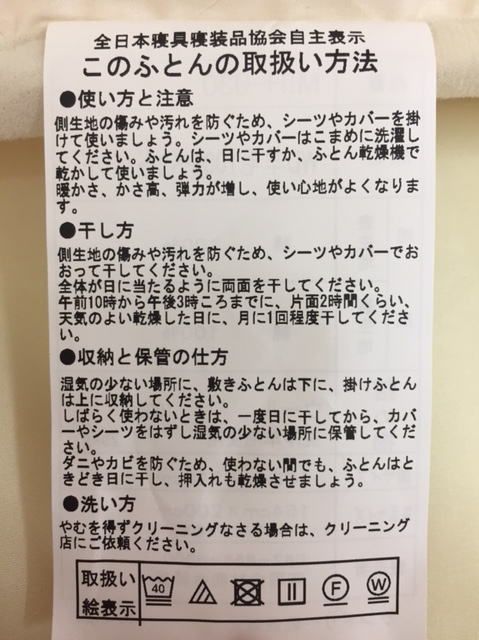 全日本寝具寝装品協会自主表示
このふとんの取扱い方法
●使い方と注意
側生地の傷みや汚れを防ぐため、シーツやカバーを掛
けて使いましょう。シーツやカバーはこまめに洗濯し
てください。ふとんは、日に干すか、ふとん乾燥機で
乾かして使いましょう。
暖かさ、かさ高、弾力が増し、使い心地がよくなりま
す。
●干し方
側生地の傷みや汚れを防ぐため、シーツやカバーでお
おって干してください。
全体が日に当たるように両面を干してください。
午前10時から午後3時ころまでに、片面2時間くらい、
天気のよい乾燥した日に、月に1回程度干してくださ
い。
●収納と保管の仕方
湿気の少ない場所に、敷きふとんは下に、掛けふとん
は上に収納してください。
しばらく使わないときは、一度日に干してから、カバ
ーやシーツをはずし湿気の少ない場所に保管してくだ
さい。
ダニやカビを防ぐため、使わない間でも、ふとんはと
きどき日に干し、押入れも乾燥させましょう。
●洗い方
やむを得ずクリーニングなさる場合は、クリーニング
店にご依頼ください。
取扱い
絵表示
40 F W